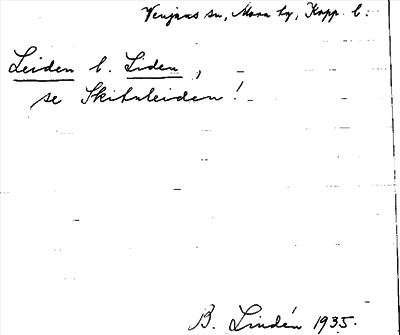 Venjans sn, Mora tg, Kopp. l:
Leiden l. Liden,
se Skitnleiden!
B. Lindén 1935.